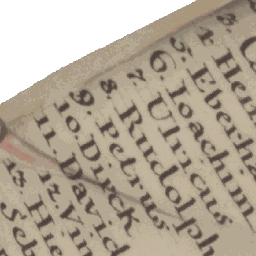 3. C
4. Hen
5. Eberha
6. Ioachim
7. Ulricus
8. Rudolph
9. Petrus
10. Dirck
11. David
12. Vin
13. Hie
Seb